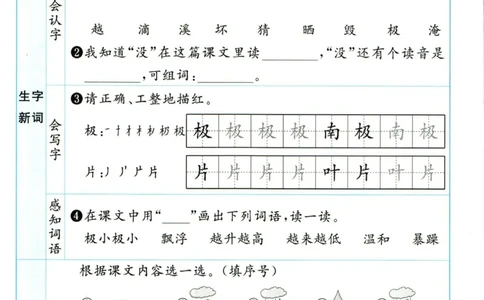 会认字
越 滴 溪 坏 猜 晒 毁 极 淹
❷我知道“没”在这篇课文里读________,“没”还有个读音是
________,可组词:________。
生字新词
会写字
❸请正确、工整地描红。
极: 极 极 极 极 南 极 南 极
片: 片 片 片 片 叶 片 叶 片
感知词语
❹在课文中用“____”画出下列词语,读一读。
极小极小 飘浮 越升越高 越来越低 温和 暴躁
根据课文内容选一选。(填序号)